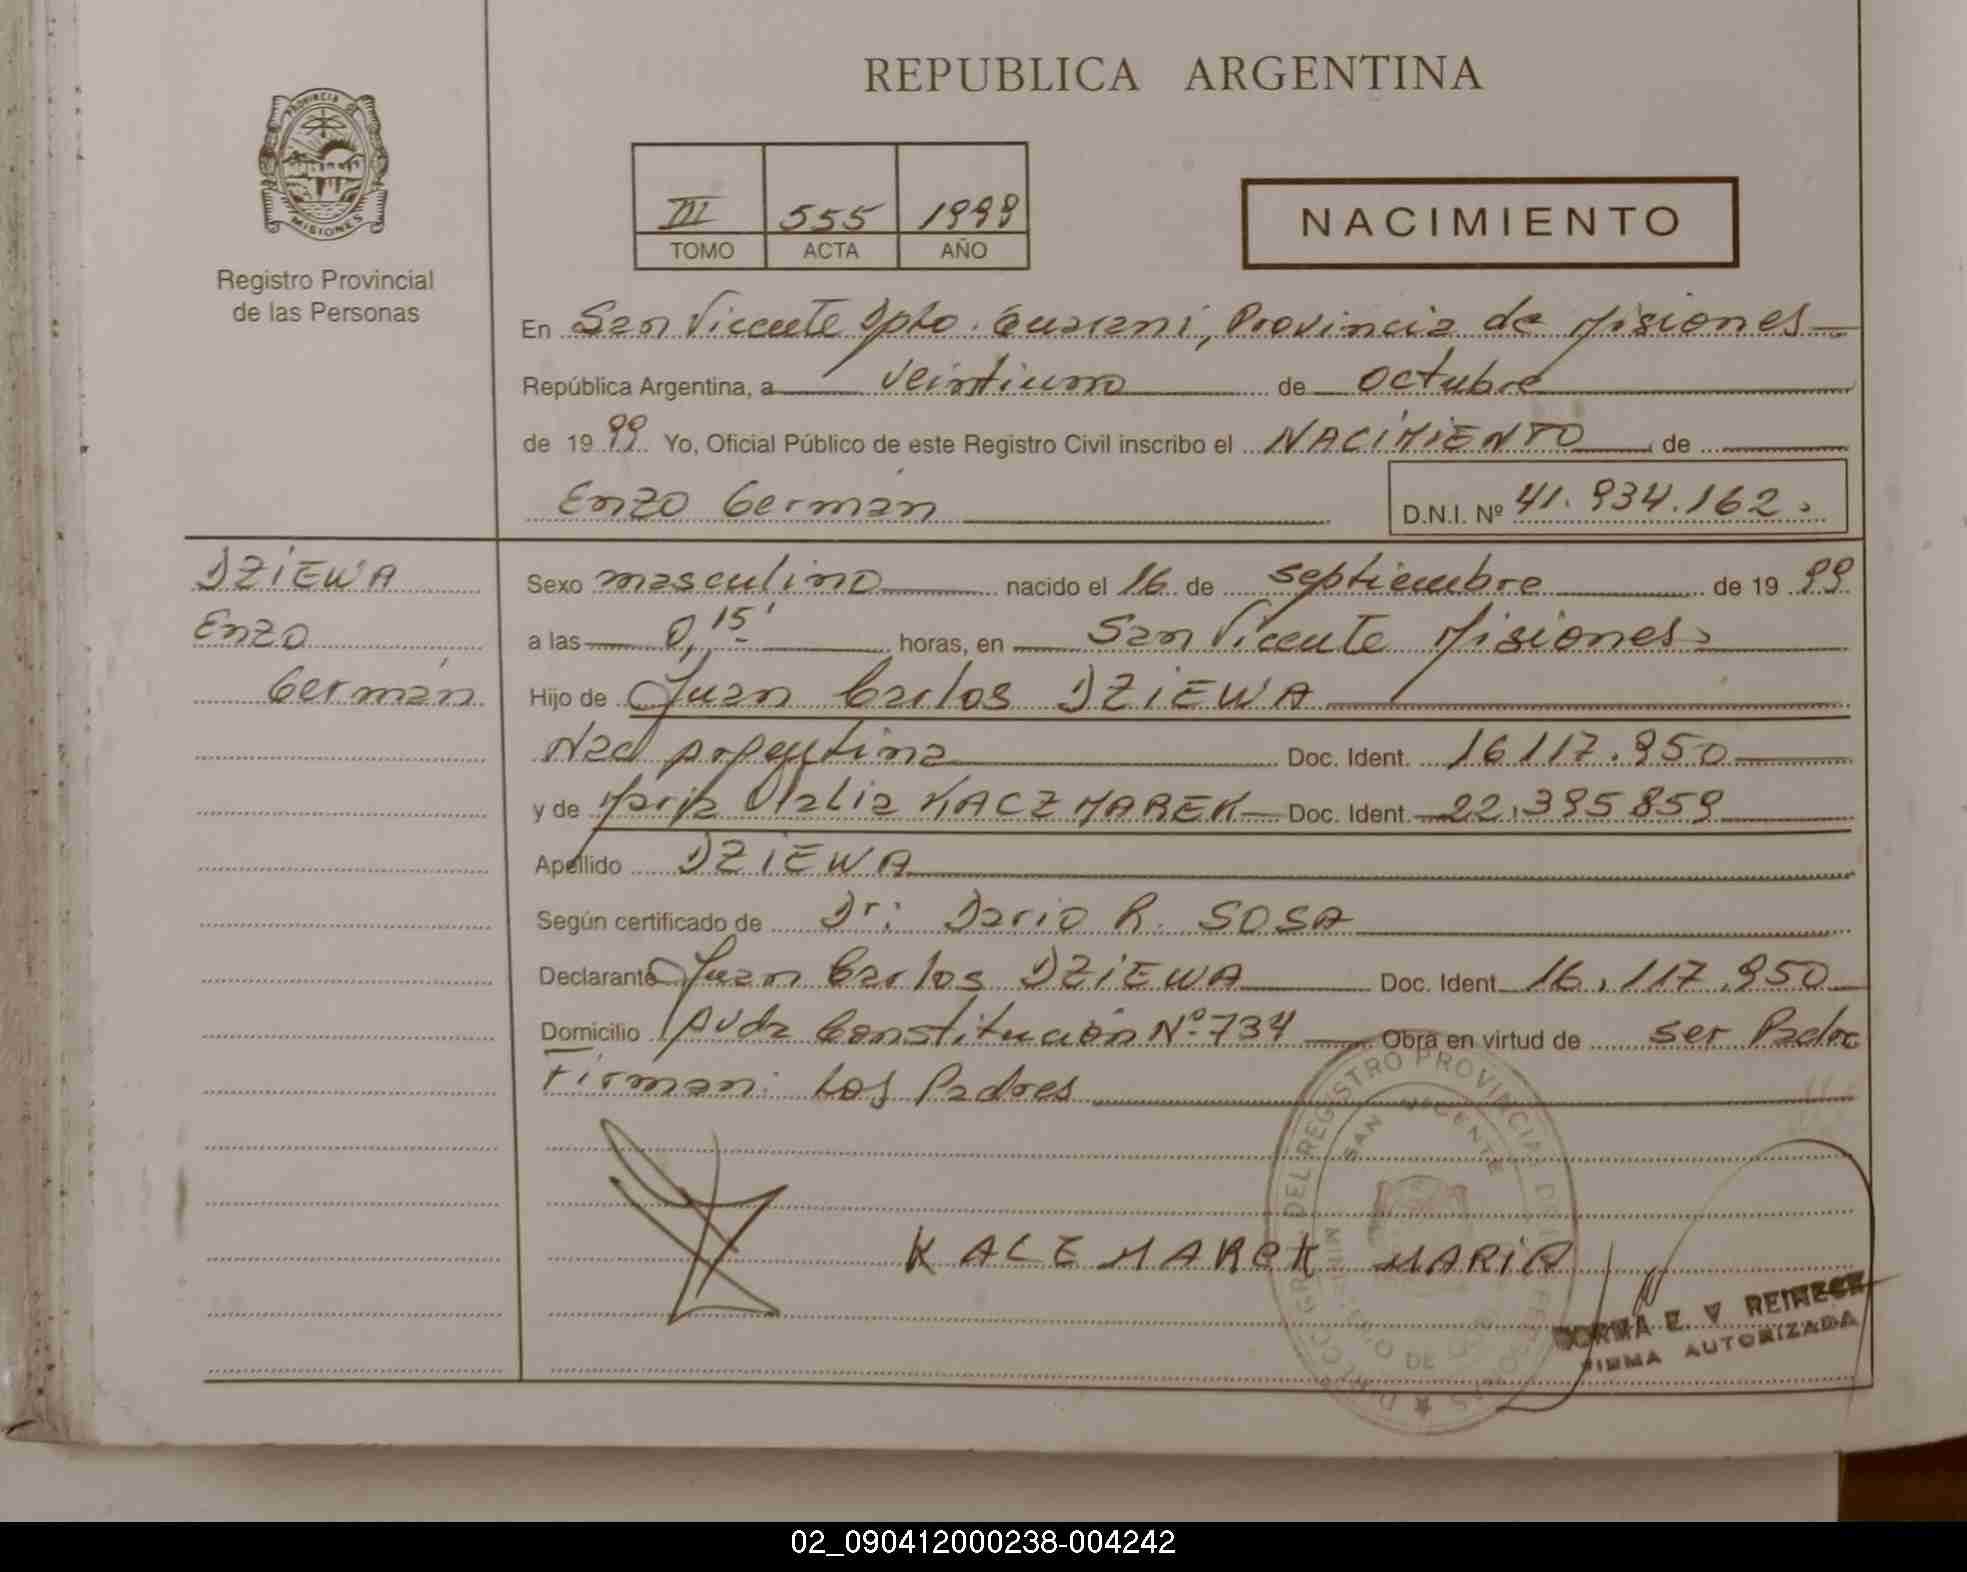 REPUBLICA ARGENTINA
PROVINCIA DE
MISIONES
Registro Provincial
de las Personas
III 555 1999
TOMO ACTA AÑO
NACIMIENTO
En San Vicente Dpto. Guarani, Provincia de Misiones
República Argentina, a veintiuno de octubre
de 1999 Yo, Oficial Público de este Registro Civil inscribo el NACIMIENTO de
Enzo Germán D.N.I. Nº 41.934.162.
DZIEWA
Enzo
Germán
Sexo masculino nacido el 16 de septiembre de 1999
a las 0,15' horas, en San Vicente Misiones
Hijo de Juan Carlos DZIEWA
Nac argentina Doc. Ident. 16117.950
y de Maria Olalia KACZMAREK Doc. Ident. 22.395859
Apellido DZIEWA
Según certificado de Dr: Dario R. SOSA
Declarante Juan Carlos DZIEWA Doc. Ident. 16.117.950
Domicilio Avda Constitución Nº 734 Obra en virtud de ser Padre
Firman: Los Padres
KACZMAREK MARIA
SAN VICENTE
REINECK
FIRMA AUTORIZADA
02_090412000238-004242